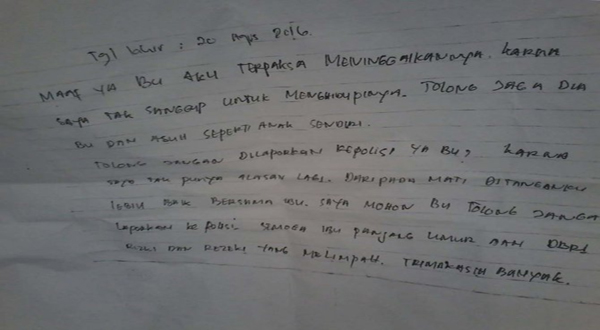 Tgl lahir : 20 Ags 2016.
MAAF YA BU AKU TERPAKSA MENINGGALKANNYA. KARNA
SAYA TAK SANGGUP UNTUK MENGHIDUPINYA. TOLONG JAGA DIA
BU DAN ASUH SEPERTI ANAK SENDIRI.
TOLONG JANGAN DILAPORKAN KEPOLISI YA BU, KARNA
SAYA TAK PUNYA ALASAN LAGI. DARIPADA MATI DITANGANKU
LEBIH BAIK BERSAMA IBU. SAYA MOHON BU TOLONG JANGAN
LAPORKAN KE POLISI SEMOGA IBU PANJANG UMUR DAN DBRI
DAN REZEKI YANG MELIMPAH. TRIMAKASIH BANYAK.